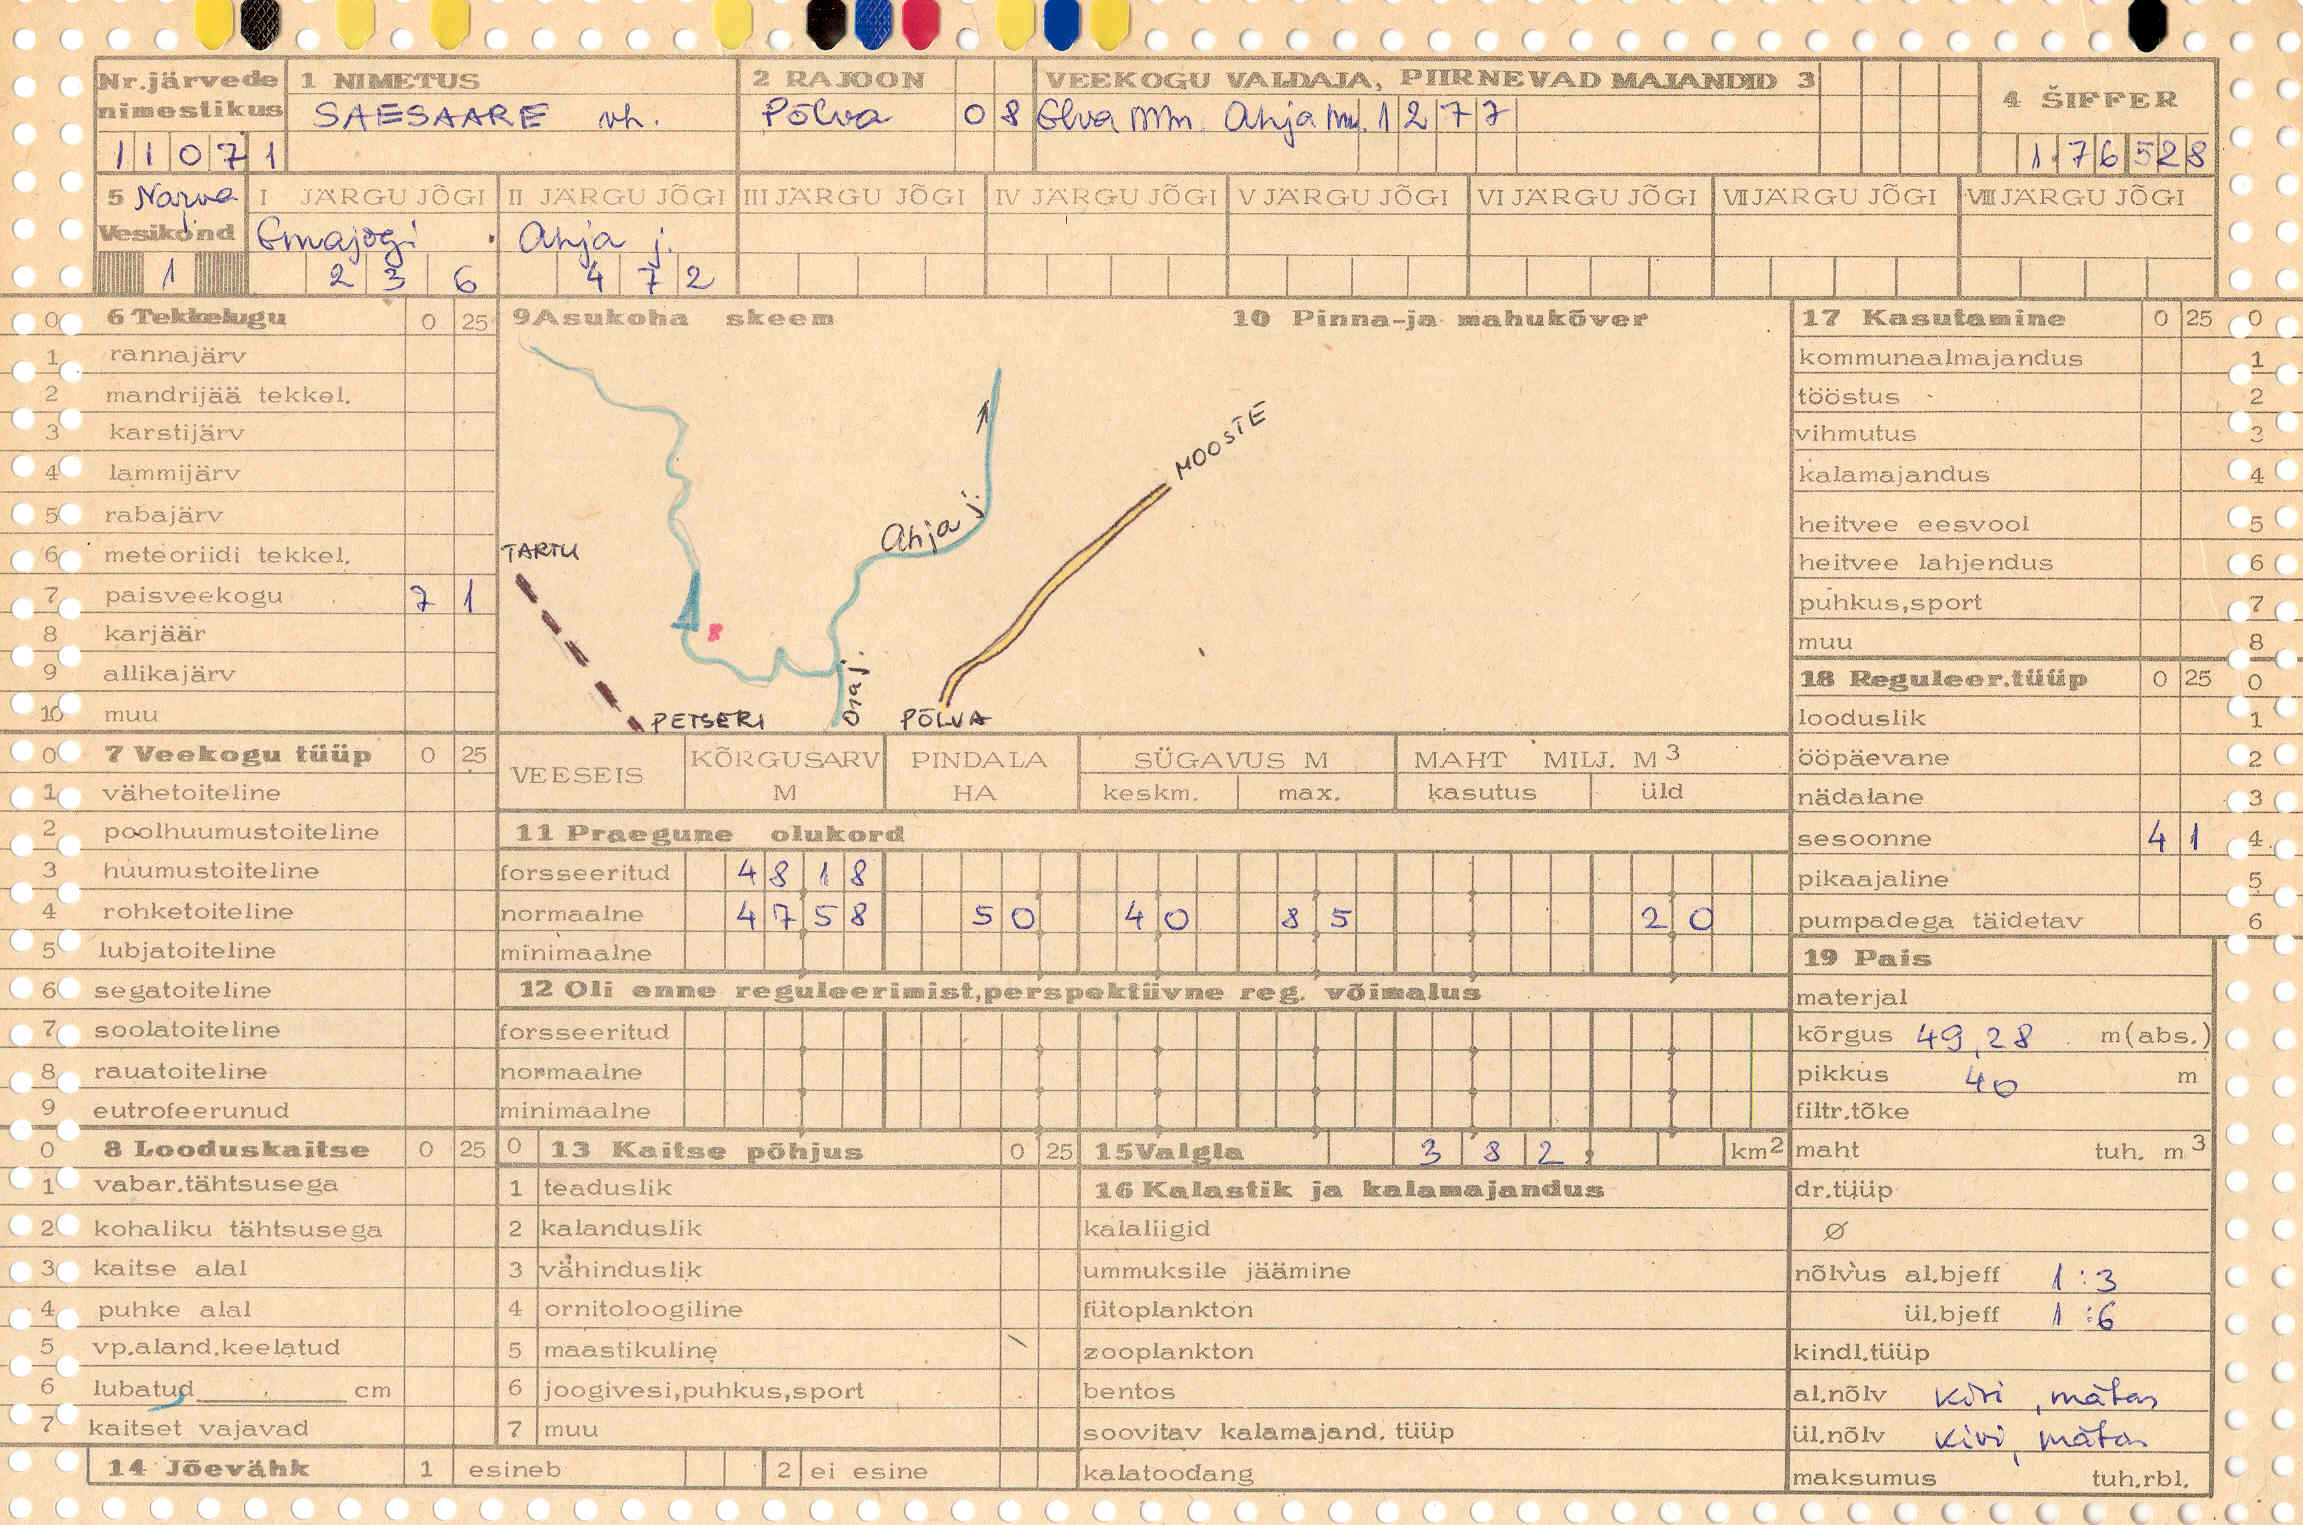 Nr.järvede nimestikus
11071
1 NIMETUS
SAESAARE vh.
2 RAJOON
Põlva 08
VEEKOGU VALDAJA, PIIRNEVAD MAJANDID 3
Elva MMn. Ahja 1277
4 ŠIFFER
176528
5 Narva j. Vesikond
1
I JÄRGU JÕGI
Emajõgi
236
II JÄRGU JÕGI
Ahja j.
472
III JÄRGU JÕGI
IV JÄRGU JÕGI
V JÄRGU JÕGI
VI JÄRGU JÕGI
VII JÄRGU JÕGI
VIII JÄRGU JÕGI
0 6 Tekkelugu 0 25
1 rannajärv
2 mandrijää tekkel.
3 karstijärv
4 lammijärv
5 rabajärv
6 meteoriidi tekkel.
7 paisveekogu 7 1
8 karjäär
9 allikajärv
10 muu
0 7 Veekogu tüüp 0 25
1 vähetoiteline
2 poolhuumustoiteline
3 huumustoiteline
4 rohketoiteline
5 lubjatoiteline
6 segatoiteline
7 soolatoiteline
8 rauatoiteline
9 eutrofeerunud
0 8 Looduskaitse 0 25
1 vabar.tähtsusega
2 kohaliku tähtsusega
3 kaitse alal
4 puhke alal
5 vp.aland.keelatud
6 lubatud cm
7 kaitset vajavad
14 Jõevähk 1 esineb 2 ei esine
9 Asukoha skeem
10 Pinna-ja mahukõver
MOOSTE
Ahja j.
TARTU
Ora j.
PETSERI
PÕLVA
VEESEIS
KÕRGUSARV M
PINDALA HA
SÜGAVUS M
keskm. max.
MAHT MILJ. M3
kasutus üld
11 Praegune olukord
forsseeritud 48 18
normaalne 47 58 50 4 0 8 5 2 0
minimaalne
12 Oli enne reguleerimist,perspektiivne reg. võimalus
forsseeritud
normaalne
minimaalne
0 13 Kaitse põhjus 0 25
1 teaduslik
2 kalanduslik
3 vähinduslik
4 ornitoloogiline
5 maastikuline
6 joogivesi,puhkus,sport
7 muu
15 Valgla 382, km2
16 Kalastik ja kalamajandus
kalaliigid
ummuksile jäämine
fütoplankton
zooplankton
bentos
soovitav kalamajand. tüüp
kalatoodang
17 Kasutamine 0 25 0
kommunaalmajandus 1
tööstus 2
vihmutus 3
kalamajandus 4
heitvee eesvool 5
heitvee lahjendus 6
puhkus,sport 7
muu 8
18 Reguleer.tüüp 0 25 0
looduslik 1
ööpäevane 2
nädalane 3
sesoonne 4 1 4
pikaajaline 5
pumpadega täidetav 6
19 Pais
materjal
kõrgus 49,28 m(abs.)
pikkus 40 m
filtr.tõke
maht tuh. m3
dr.tüüp
Ø
nõlvus al.bjeff 1:3
ül.bjeff 1:6
kindl.tüüp
al.nõlv kivi, mätas
ül.nõlv kivi, mätas
maksumus tuh.rbl.